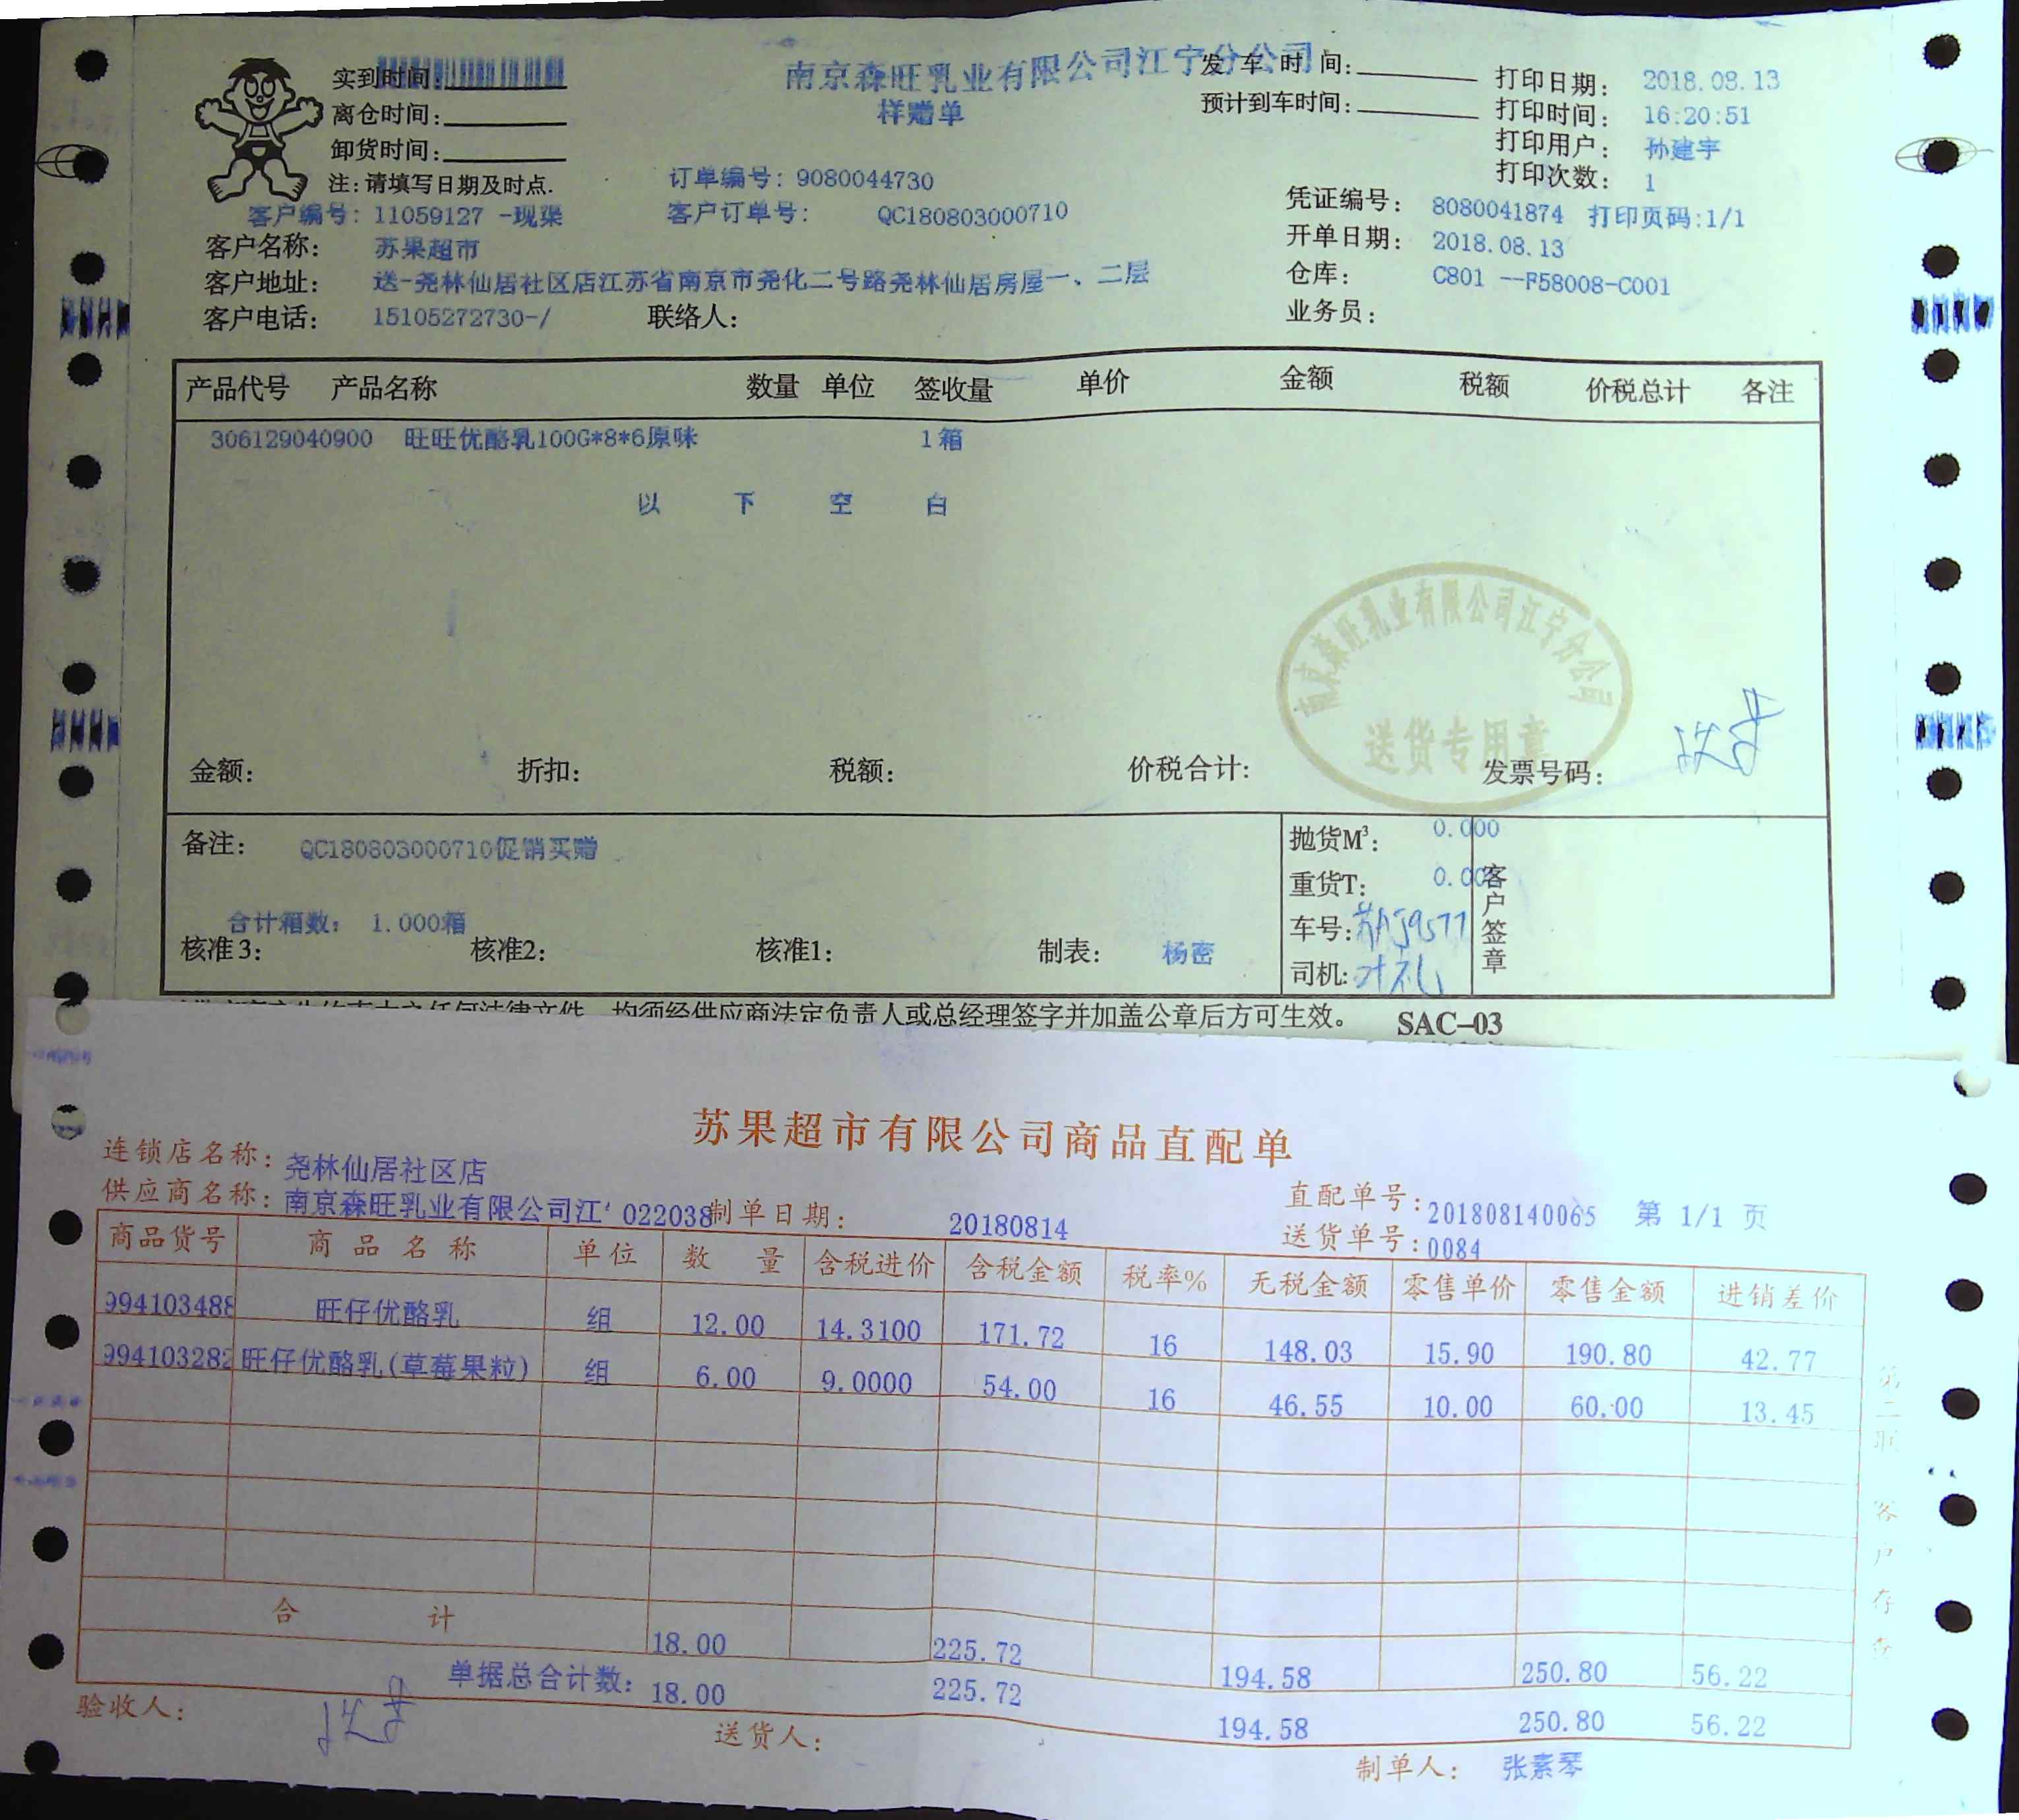 南京森旺乳业有限公司江宁分公司
样赠单
实到时间:
离仓时间:
卸货时间:
注:请填写日期及时点.
发车时间:
预计到车时间:
打印日期: 2018.08.13
打印时间: 16:20:51
打印用户: 孙建宇
打印次数: 1
订单编号: 9080044730
客户编号: 11059127 -现渠
客户订单号: QC180803000710
凭证编号: 8080041874 打印页码:1/1
客户名称: 苏果超市
开单日期: 2018.08.13
客户地址: 送-尧林仙居社区店江苏省南京市尧化二号路尧林仙居房屋一、二层
仓库: C801 --F58008-C001
客户电话: 15105272730-/ 联络人:
业务员:
产品代号 产品名称 数量 单位 签收量 单价 金额 税额 价税总计 各注
306129040900 旺旺优酪乳100G*8*6原味 1箱
以下空白
南京森旺乳业有限公司江宁分公司
送货专用章
金额: 折扣: 税额: 价税合计: 发票号码:
备注: QC180803000710促销买赠
抛货M³: 0.000
重货T: 0.00
合计箱数: 1.000箱
车号:
司机:
客户签章
核准3: 核准2: 核准1: 制表: 杨密
均须经供应商法定负责人或总经理签字并加盖公章后方可生效。 SAC-03
苏果超市有限公司商品直配单
连锁店名称: 尧林仙居社区店
供应商名称: 南京森旺乳业有限公司江' 022038 制单日期: 20180814
直配单号: 201808140065 第 1/1 页
送货单号: 0084
商品货号 商品名称 单位 数量 含税进价 含税金额 税率% 无税金额 零售单价 零售金额 进销差价
994103488 旺仔优酪乳 组 12.00 14.3100 171.72 16 148.03 15.90 190.80 42.77
994103282 旺仔优酪乳(草莓果粒) 组 6.00 9.0000 54.00 16 46.55 10.00 60.00 13.45
合计 18.00 225.72 194.58 250.80 56.22
单据总合计数: 18.00 225.72 194.58 250.80 56.22
验收人: 送货人: 制单人: 张素琴
第二联 客户存